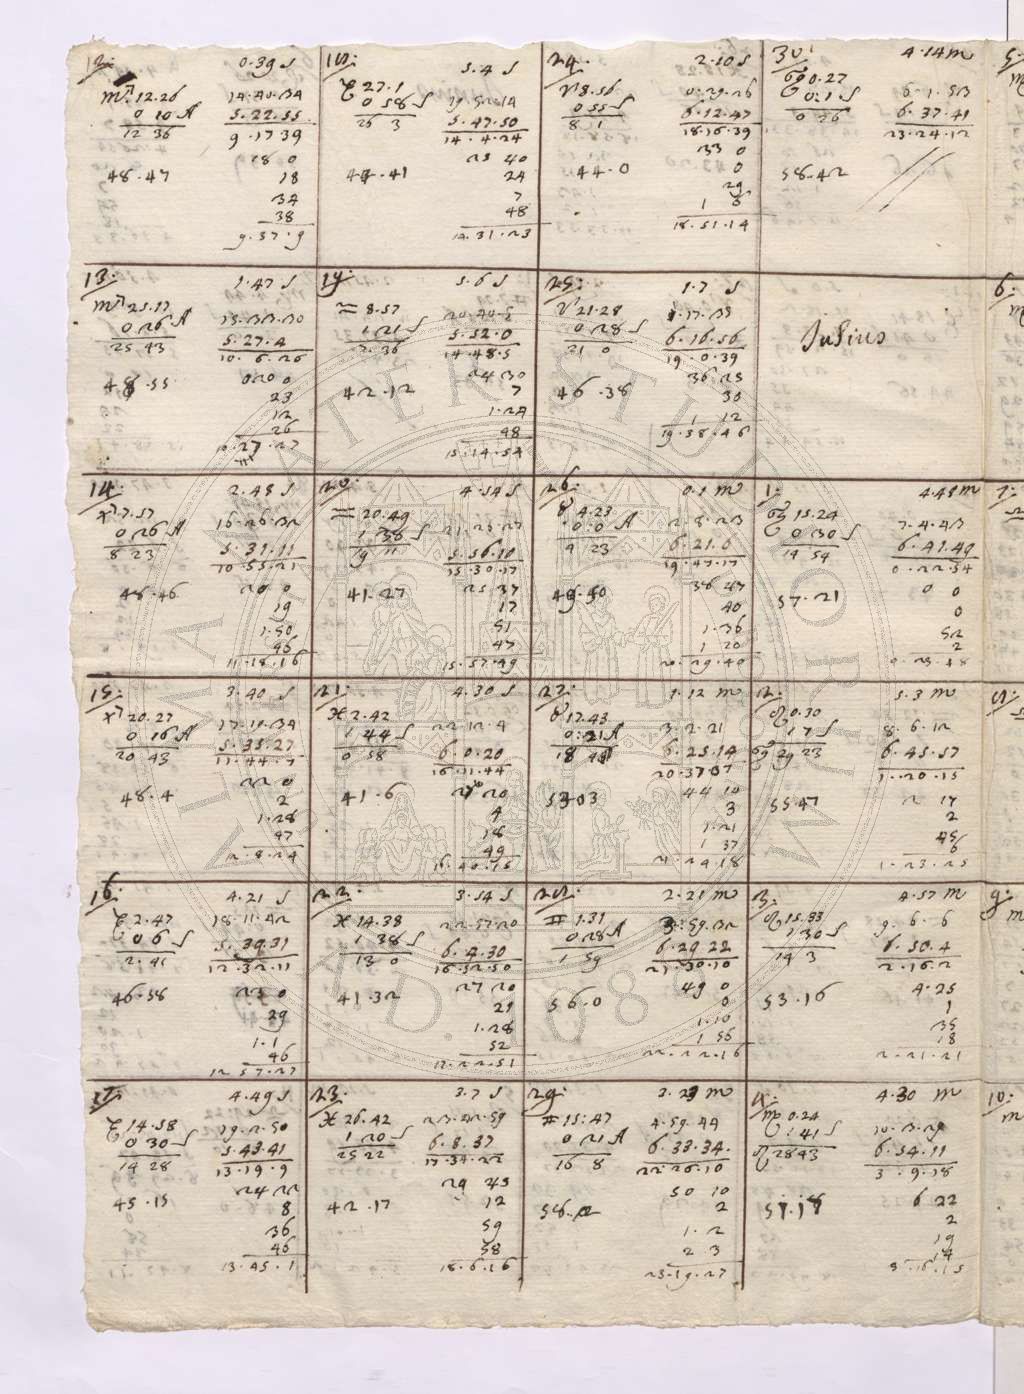 12. 0.39 S
♏ 12.26 14.40.34
0 10 A 5.22.55
12 36 9.17 39
18 0
48.47 18
34
38
9.37.9
18. 5.4 S
27.1
0 58 S
26 3 5.47.50
14.4.24
25 40
44.41 24
7
48
14.31.23
24. 2.50 S
♈ 8.56 0.29.26
0 55 S 6.12.47
8 1 18.16.39
33 0
44.0 0
29
18.51.14
30 4.14 m
♋ 0.27 6.1.53
0.1 S 6.37.41
0 26
58.42
13. 1.47 S
♏ 25.17 15.33.30
0 26 A 5.27.4
25 43 10.6.26
20 0
48.55 23
12
26
10.27.27
19. 5.6 S
♒ 8.57
1 21 S 5.52.0
7.36 14.48.5
24 30
42.12 7
1.24
48
15.14.54
25. 1.7 S
♈ 21.28 1.17.39
0 28 S 6.16.56
21 0 19.0.39
36 25
46.38 30
1 12
19.38.46
Julius
14. 2.48 S
♐ 7.57 16.26.32
0 26 A 5.31.11
8 23 10.55.21
20 0
48.46 19
1.50
46
11.18.16
20. 4.54 S
♒ 20.49 21.25.27
1 38 S 5.56.10
19 11 15.30.17
25 37
41.27 17
51
47
15.57.49
26. 0.1 m
♉ 4.23 2.8.23
0.0 A 6.21.6
19.47.17
38 47
49.50 40
1.36
1 20
20.29.40
1. 4.48 m
♋ 15.24 7.4.43
0 30 S 6.41.49
14 54 0.22.54
0 0
57.21 0
52
2
0.23.48
15. 3.40 S
♐ 20.27 17.19.34
0 16 A 5.35.27
20 43 11.44.7
22 0
48.4 2
1.28
47
12.8.24
21. 4.30 S
♓ 2.42 22.12.4
1 44 S 6.0.20
0 58 16.11.44
41.6 4
18
49
16.40.15
27. 1.12 m
♉ 17.43 3.2.21
0.21 A 6.25.14
20.37 07
44 10
3
1.21
1 37
21.24.18
2. 5.3 m
♌ 0.30 8.6.12
1 7 S 6.45.57
♋ 29 23 1.20.15
2 17
55 47 2
45
6
1.23.25
16. 4.21 S
2.47 18.11.42
0 6 S 5.39.31
2.41 12.32.11
23 0
46.58 29
1.1
46
12 57.27
22. 3.54 S
♓ 14.38 22.57.20
1 38 S 6.4.30
13 0 16.52.50
27 20
41.32 21
1.28
52
17.22.51
28. 2.21 m
♊ 1.31 3.59.32
0 28 A 6.29 22
1 59 21.30.10
49 0
56.0 0
1.10
1 56
22.22.16
3. 4.57 m
♌ 15.33 9.6.6
1 30 S 6.50.4
14 3 2.16.2
4.25
53.16 1
35
18
2.21.21
17. 4.49 S
14.58 19.2.50
0 30 S 5.43.41
14 28 13.19.9
24 22
45.15 8
36
46
13.45.1
23. 3.7 S
♓ 26.42 23.42.59
1 20 S 6.8.37
25 22 17.34.22
29 45
42.17 12
59
58
18.6.16
29. 3.23 m
♊ 15.47 4.59.44
0 21 A 6.33.34
16 8 22.26.10
50 10
58.2 2
1.2
2 3
23.19.27
4. 4.30 m
♍ 0.24 10.3.29
1.41 S 6.54.11
♌ 28 43 3.9.18
6 22
51.18 2
19
14
3.16.15